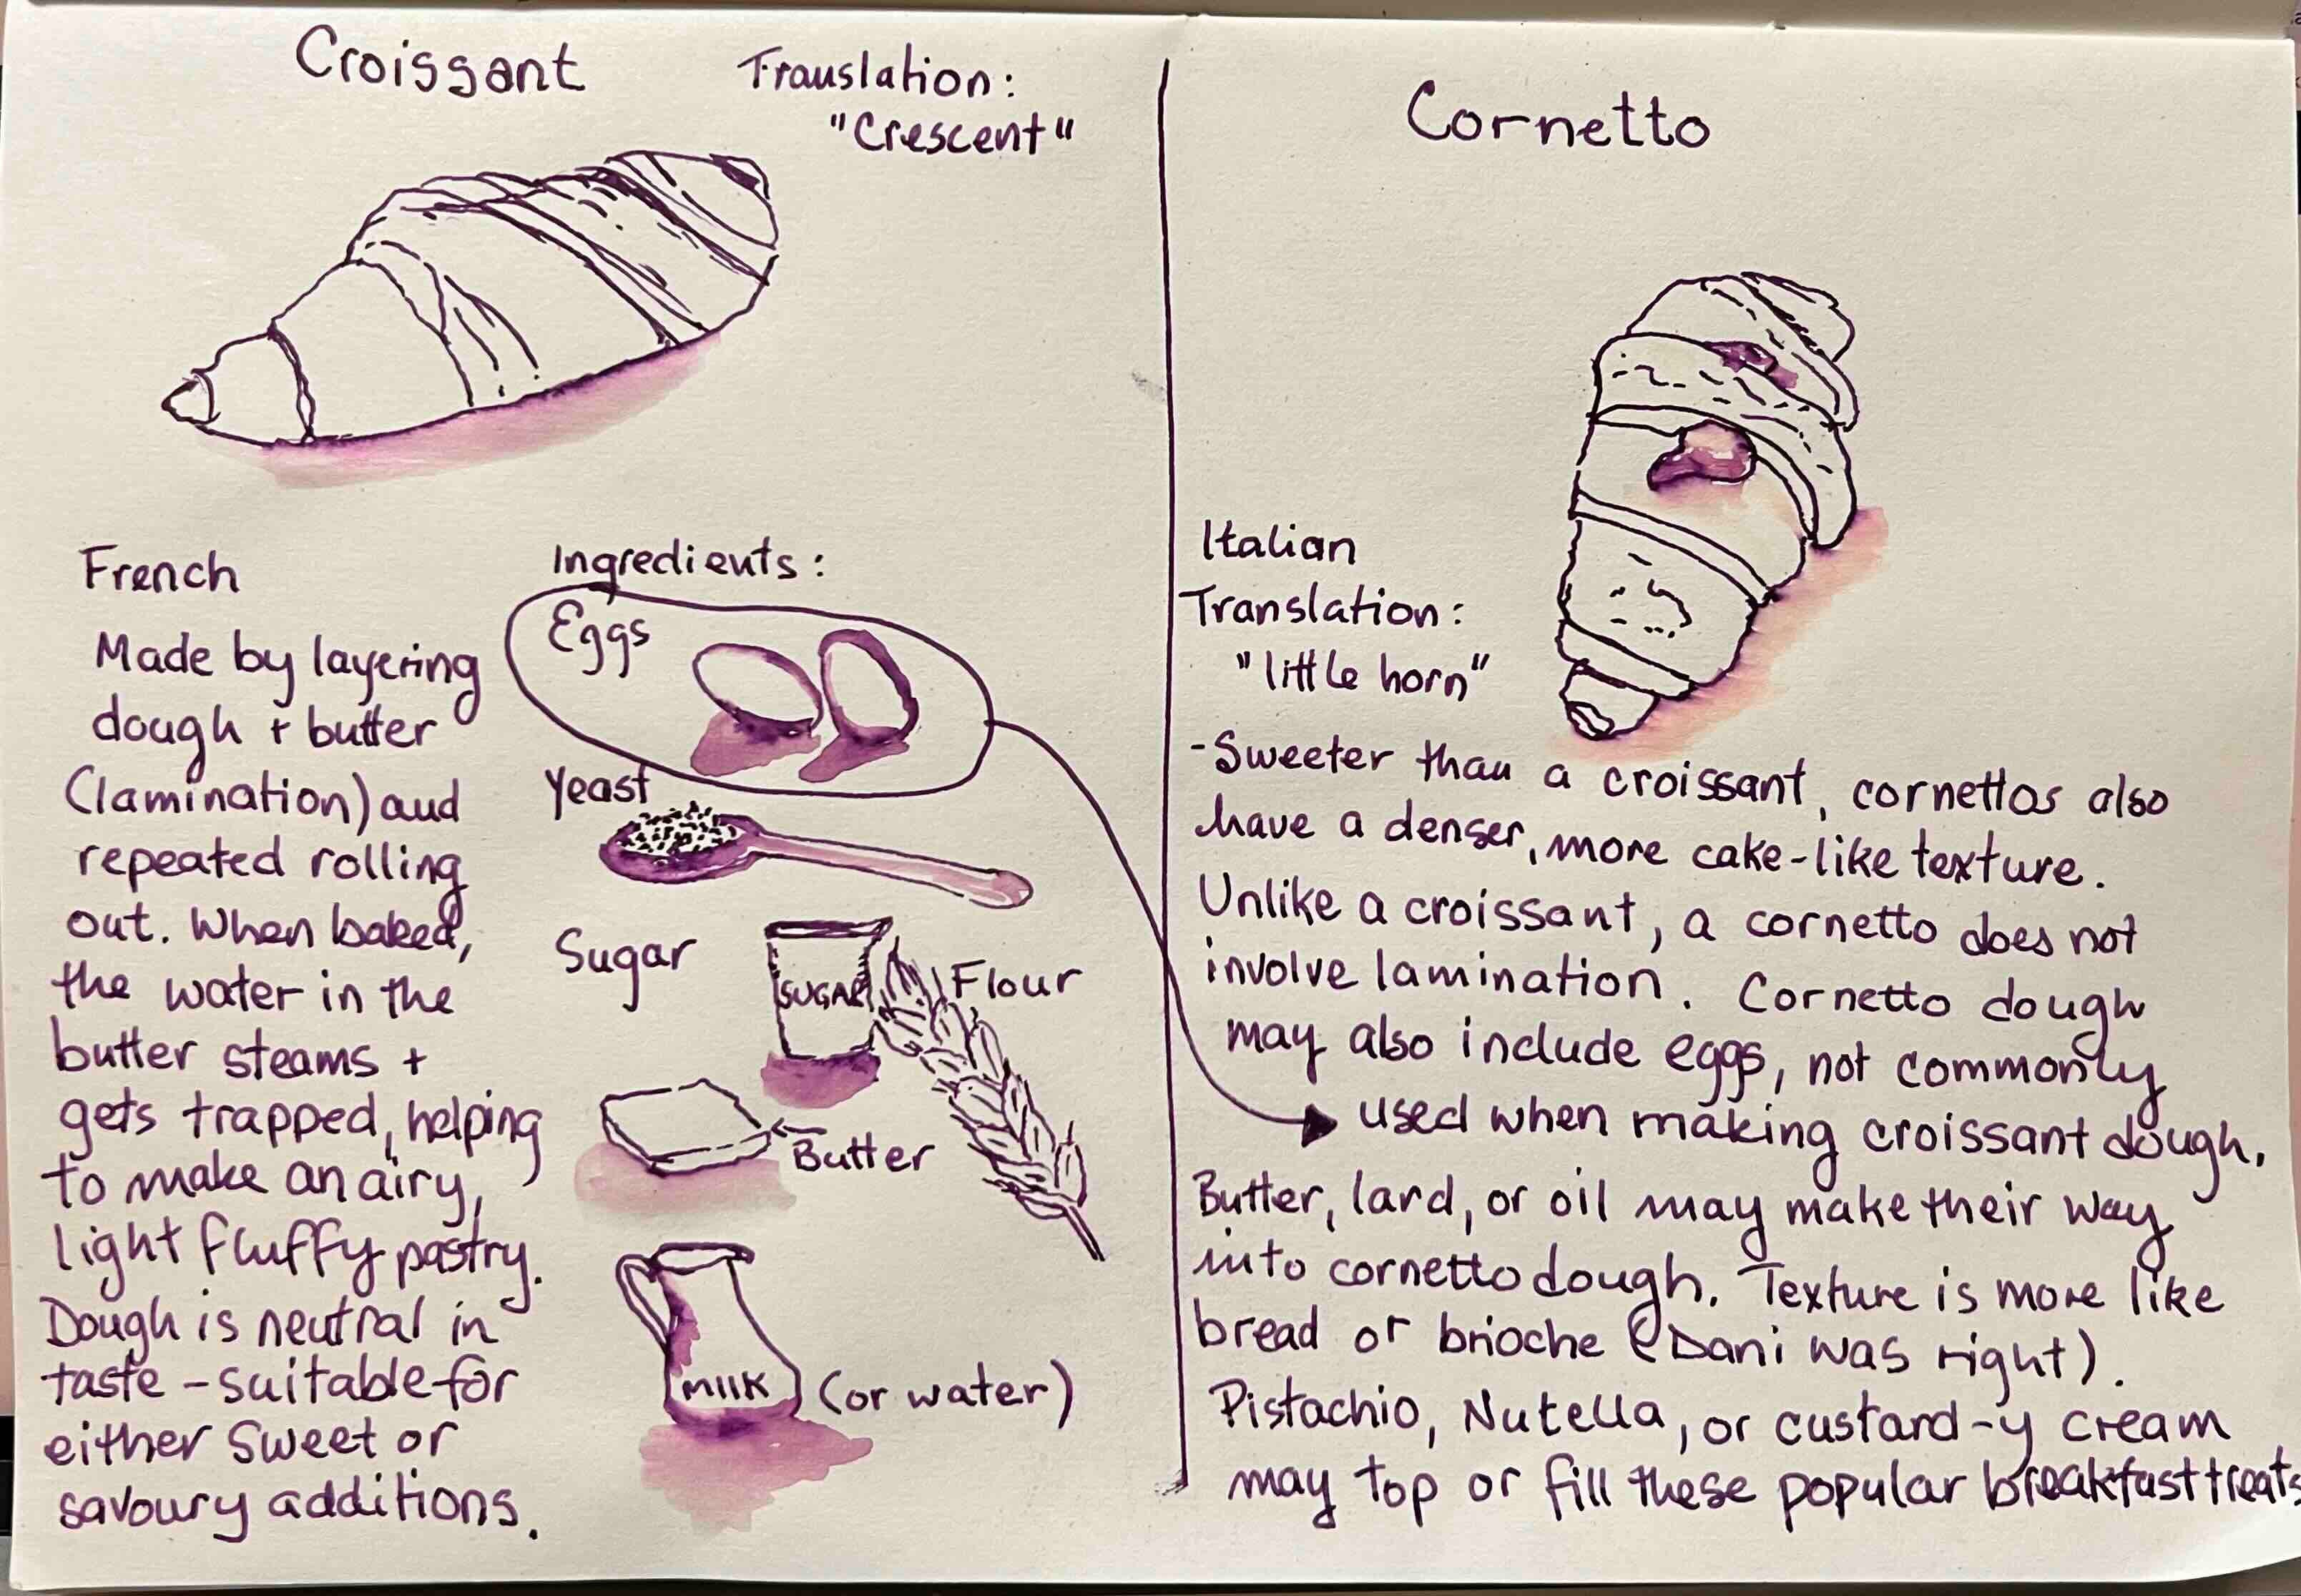 Croissant
Translation:
"Crescent"
French
Made by layering
dough + butter
(lamination) and
repeated rolling
out. When baked,
the water in the
butter steams +
gets trapped, helping
to make an airy,
light fluffy pastry.
Dough is neutral in
taste - suitable for
either sweet or
savoury additions.
Ingredients:
Eggs
Yeast
Sugar
SUGAR
Flour
Butter
MIlK
(or water)
Cornetto
Italian
Translation:
"little horn"
-Sweeter than a croissant, cornettos also
have a denser, more cake-like texture.
Unlike a croissant, a cornetto does not
involve lamination. Cornetto dough
may also include eggs, not commonly
used when making croissant dough.
Butter, lard, or oil may make their way
into cornetto dough. Texture is more like
bread or brioche (Dani was right).
Pistachio, Nutella, or custard-y cream
may top or fill these popular breakfast treats